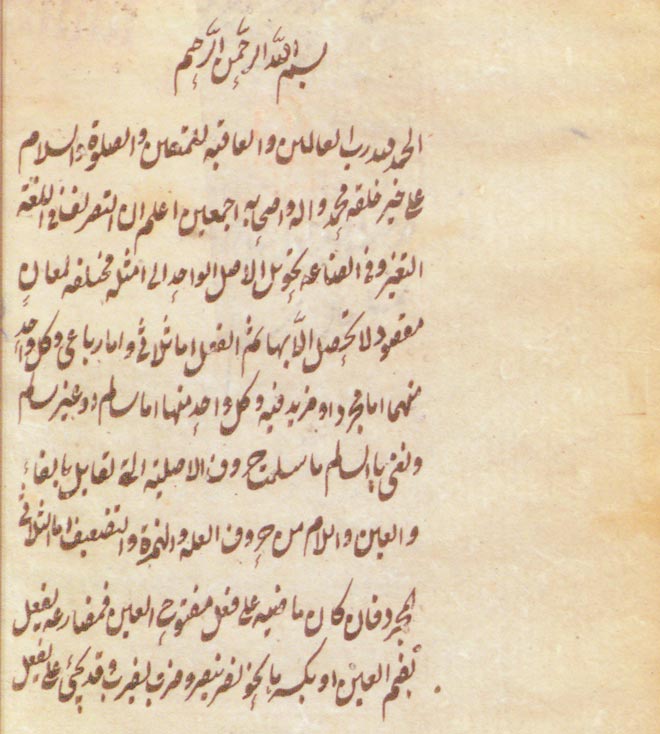 بسم الله الرحمن الرحيم
الحمد لله رب العالمين و العاقبة للمتقين والصلوة والسلام
على خير خلقه محمد واله واصحابه اجمعين اعلم ان التصريف في اللغة
التغيير وفي الصناعة تحويل الاصل الواحد الى امثلة مختلفة لمعان
مقصودة لا تحصل الا بها ثم الفعل اما ثلاثي واما رباعي وكل واحد
منهما اما مجرد او مزيد فيه وكل واحد منها اما سالم او غير سالم
ونعني بالسالم ما سلمت حروفه الاصلية التي تقابل بالفاء
والعين واللام من حروف العلة والهمزة والتضعيف اما الثلاثي
المجرد فان كان ماضيه على فعل مفتوح العين فمضارعه يفعل
بضم العين او بكسرها نحو نصر ينصر وضرب يضرب وقد يجئ على يفعل